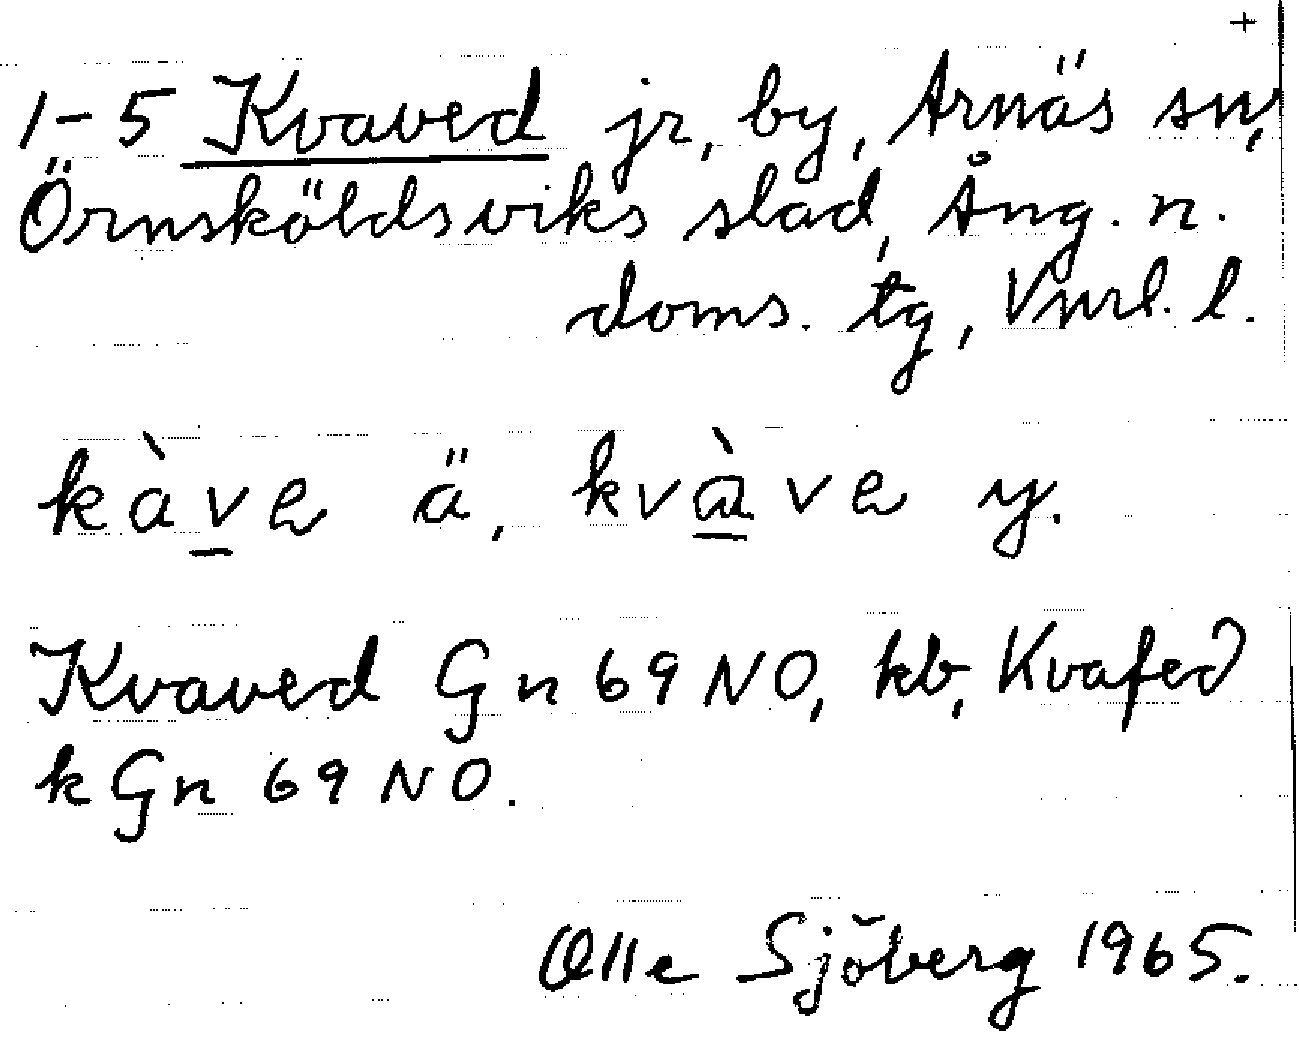 +
1-5 Kvaved jr, by, Arnäs sn,
Örnsköldsviks stad, Ång. n.
doms. tg, Vnrl. l.
kàve ä, kvàve y.
Kvaved Gn 69 NO, kb, Kvafed
k Gn 69 NO.
Olle Sjöberg 1965.